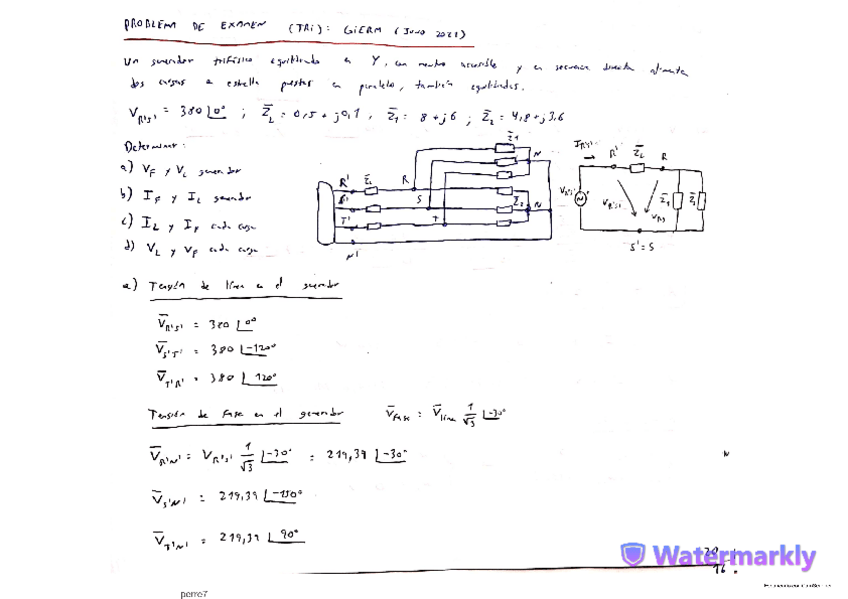 PROBLEMA DE EXAMEN (TRI): GIERM (JUNIO 2021)
Un generador trifásico equilibrado en Y, con neutro accesible y en secuencia directa alimenta
dos cargas en estrella puestas en paralelo, también equilibradas.
V̄R'S' = 380 ∠0° ; Z̄L = 0,5 + j0,1 , Z̄1 = 8 + j6 ; Z̄2 = 4,8 + j3,6
Determinar:
a) VF y VL generador
b) IF y IL generador
c) IL y IF cada carga
d) VL y VF cada carga
R' Z̄L R Z̄1 N
S' S Z̄2 N
T' T
N'
IR'S' R' Z̄L R
VR'S' VR'S' VRS Z̄1 Z̄2
S'=S
a) Tensión de línea en el generador
V̄R'S' = 380 ∠0°
V̄S'T' = 380 ∠-120°
V̄T'R' = 380 ∠120°
Tensión de fase en el generador V̄fase = V̄línea 1/√3 ∠-30°
V̄R'N' = VR'S' 1/√3 ∠-30° = 219,39 ∠-30°
N
V̄S'N' = 219,39 ∠-150°
V̄T'N' = 219,39 ∠90°
Watermarkly
16.
perre7